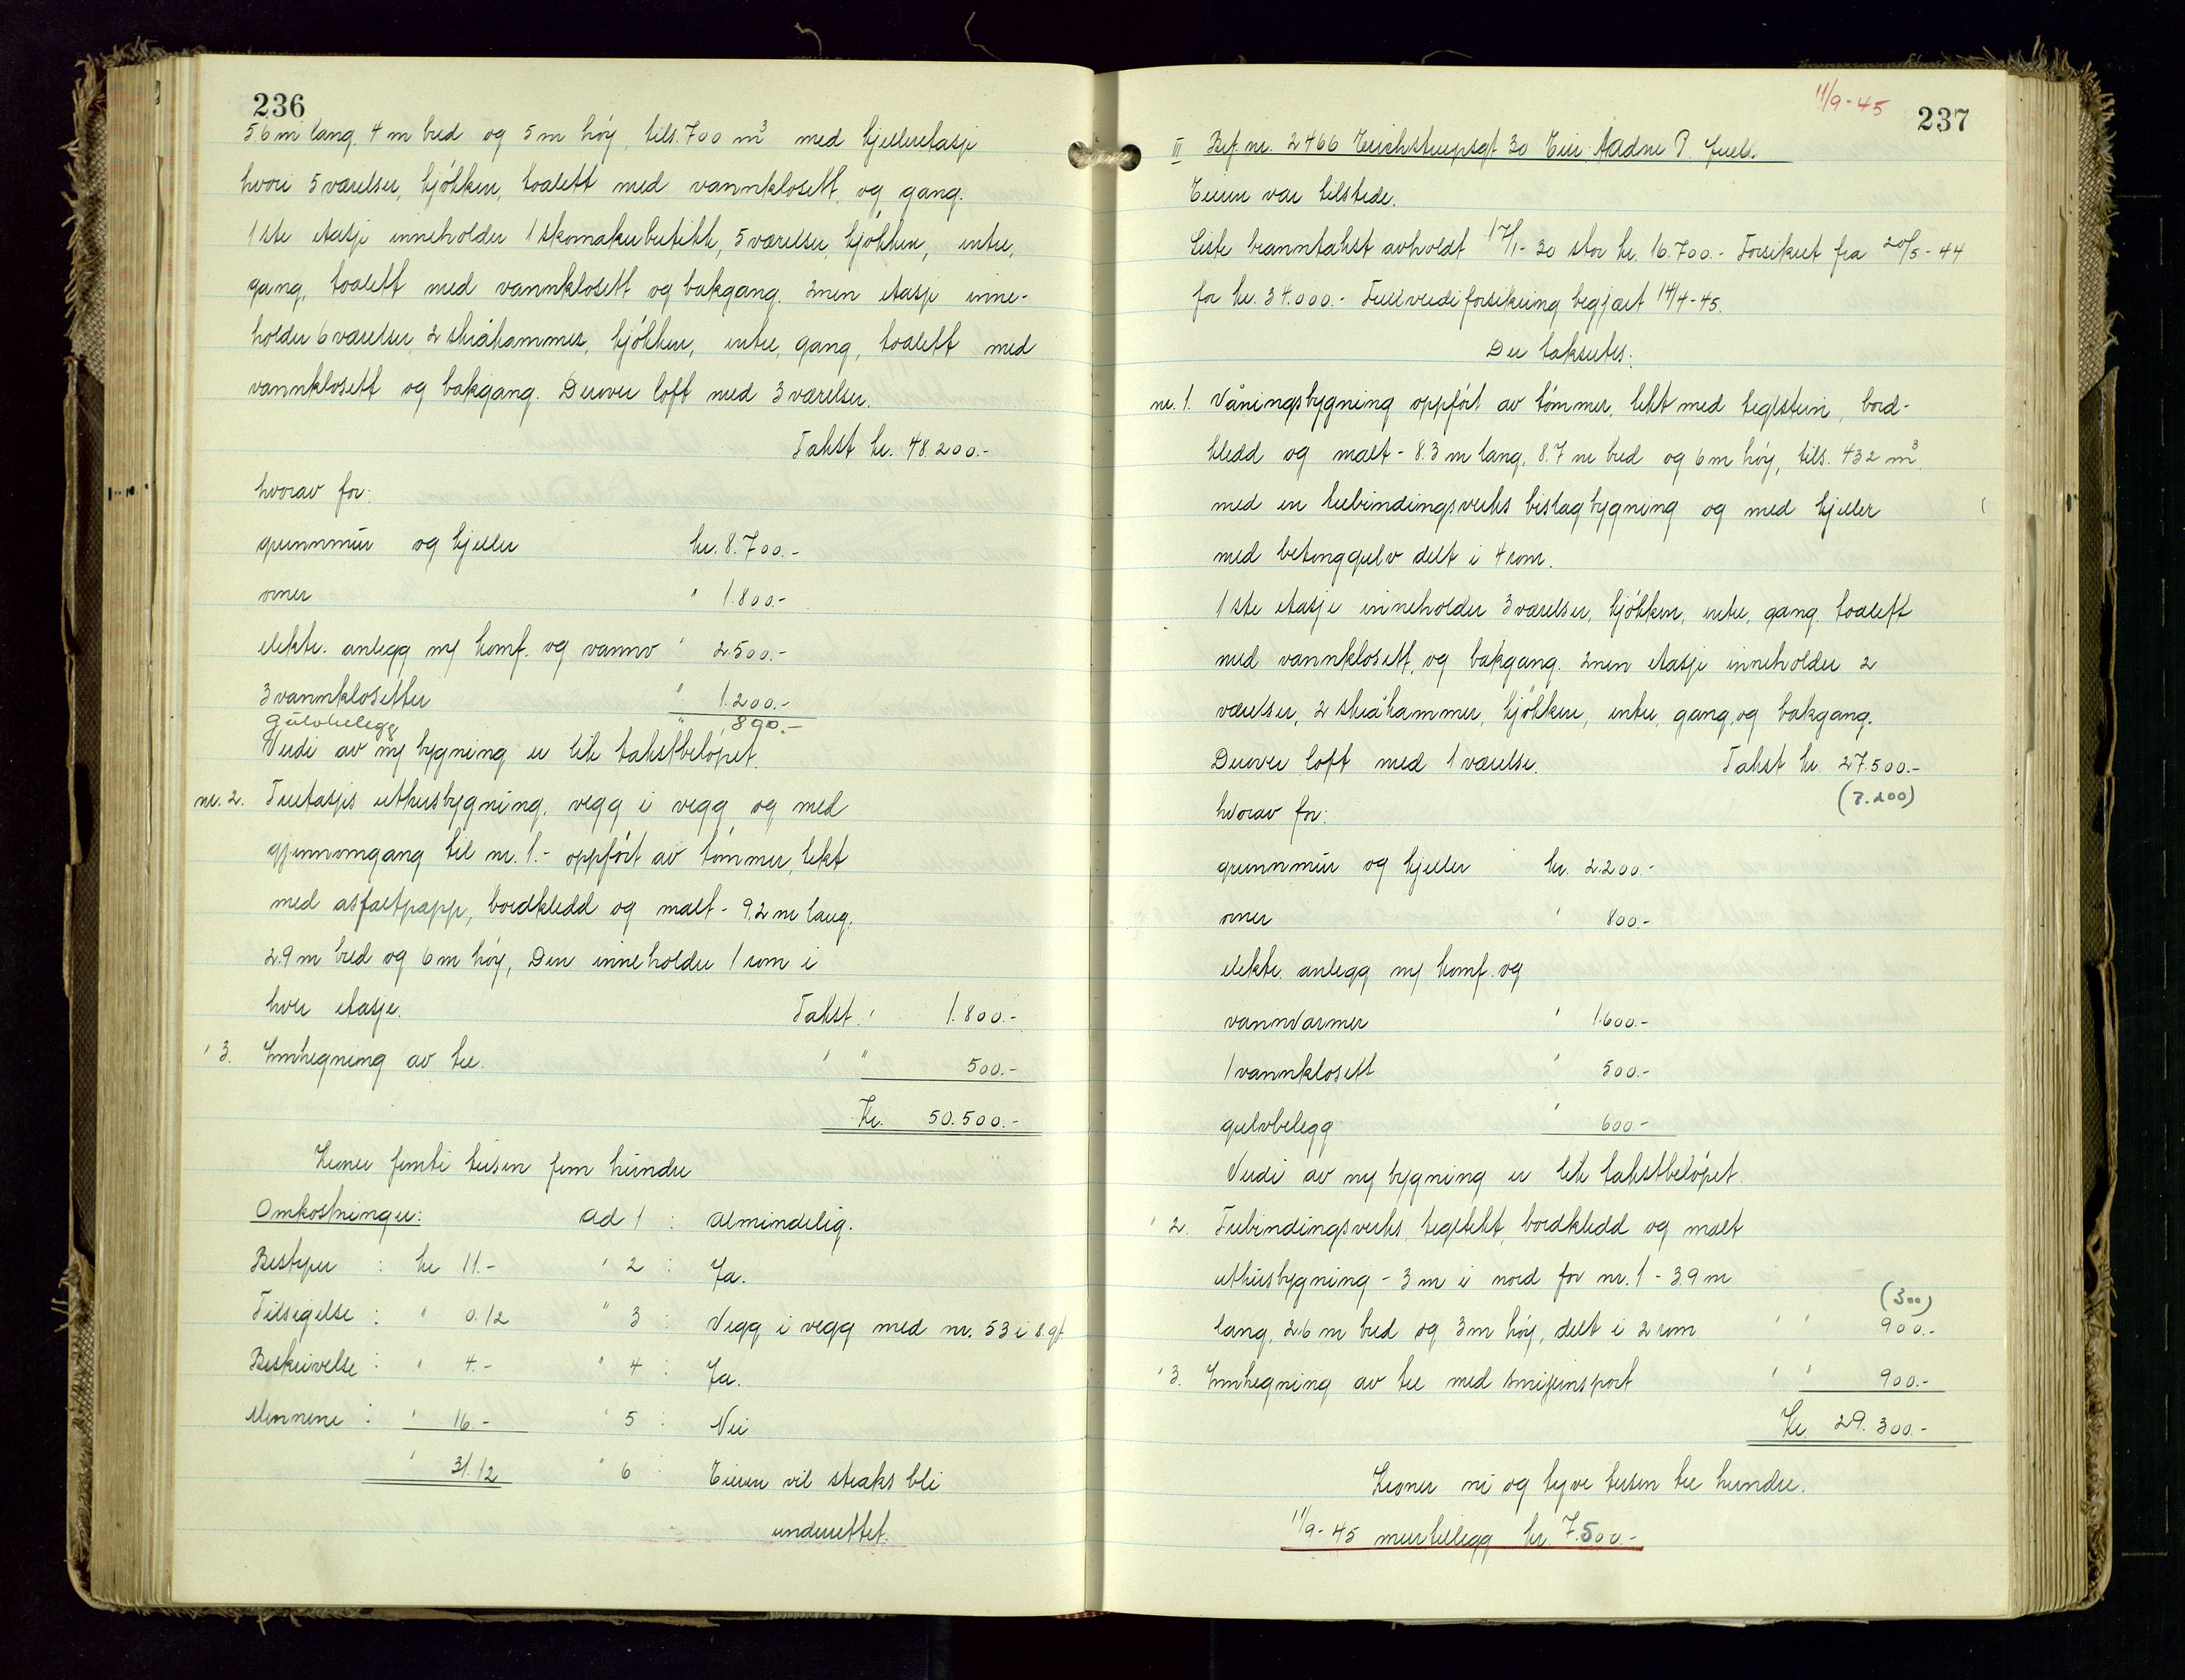 236
5.6 m lang. 4 m bred og 5 m høy, tils. 700 m³ med kjelleretasje
hvori 5 værelser, kjøkken, toalett med vannklosett, og gang.
1ste etasje inneholder 1 skomakerbutikk, 5 værelser, kjøkken, entre,
gang, toalett med vannklosett og bakgang. 2nen etasje inne-
holder 6 værelser, 2 skråkammer, kjøkken, entre, gang, toalett med
vannklosett og bakgang. Derover loft med 3 værelser.
Takst kr. 48.200.-
hvorav for:
grunnmur og kjeller kr. 8.700.-
ovner " 1.800.-
elektr. anlegg m/ komf. og vannv " 2.500.-
3 vannklosetter " 1.200.-
gulvbelegg " 890.-
Verdi av ny bygning er lik takstbeløpet.
nr. 2. Toetasjes uthusbygning, vegg i vegg og med
gjennomgang til nr. 1.- oppført av tømmer, tekt
med asfaltpapp, bordkledd og malt - 9.2 m lang.
2.9 m bred og 6 m høy, Den inneholder 1 rom i
hver etasje. Takst " 1.800.-
" 3. Innhegning av tre. " " 500.-
Kr. 50.500.-
Kroner femti tusen fem hundre
Omkostninger: ad 1 : Almindelig.
Bestyrer : kr 11.- " 2 : Ja.
Tilsigelse : " 0.12 " 3 : Vegg i vegg med nr. 53 i s.gt.
Beskrivelse : " 4.- " 4 : Ja.
Mennene : " 16.- " 5 : Nei
" 31.12 " 6 : Eieren vil straks bli
underrettet.
11/9-45
237
III Bef. nr. 2466 Erichstrupsgt 30 Eier: Aadne P. Juell.
Eieren var tilstede.
Siste branntakst avholdt 17/1-30 stor kr. 16.700.- Forsikret fra 20/5-44
for kr. 34.000.- Fullverdiforsikring begjært 14/4-45.
Der takseres:
nr. 1. Våningsbygning oppført av tømmer, tekt med teglstein, bord-
kledd og malt - 8.3 m lang, 8.7 m bred og 6 m høy, tils. 432 m³.
med en trebindingsverks bislagbygning og med kjeller
med betonggulv delt i 4 rom.
1ste etasje inneholder 3 værelser, kjøkken, entre, gang, toalett
med vannklosett, og bakgang. 2nen etasje inneholder 2
værelser, 2 skråkammer, kjøkken, entre, gang, og bakgang.
Derover loft med 1 værelse. Takst kr. 27.500.-
(7.200)
hvorav for:
grunnmur og kjeller kr. 2.200.-
ovner " 800.-
elektr. anlegg m/ komf. og
vannvarmer " 1.600.-
1 vannklosett " 500.-
gulvbelegg " 600.-
Verdi av ny bygning er lik takstbeløpet.
" 2. Trebindingsverks, tegltekt, bordkledd og malt
uthusbygning - 3 m i nord for nr. 1 - 3.9 m
(300)
lang, 2.6 m bred og 3 m høy, delt i 2 rom " " 900.-
" 3. Innhegning av tre med smijernsport " " 900.-
Kr. 29.300.-
Kroner ni og tyve tusen tre hundre.
11/9-45 mertillegg kr. 7.500.-